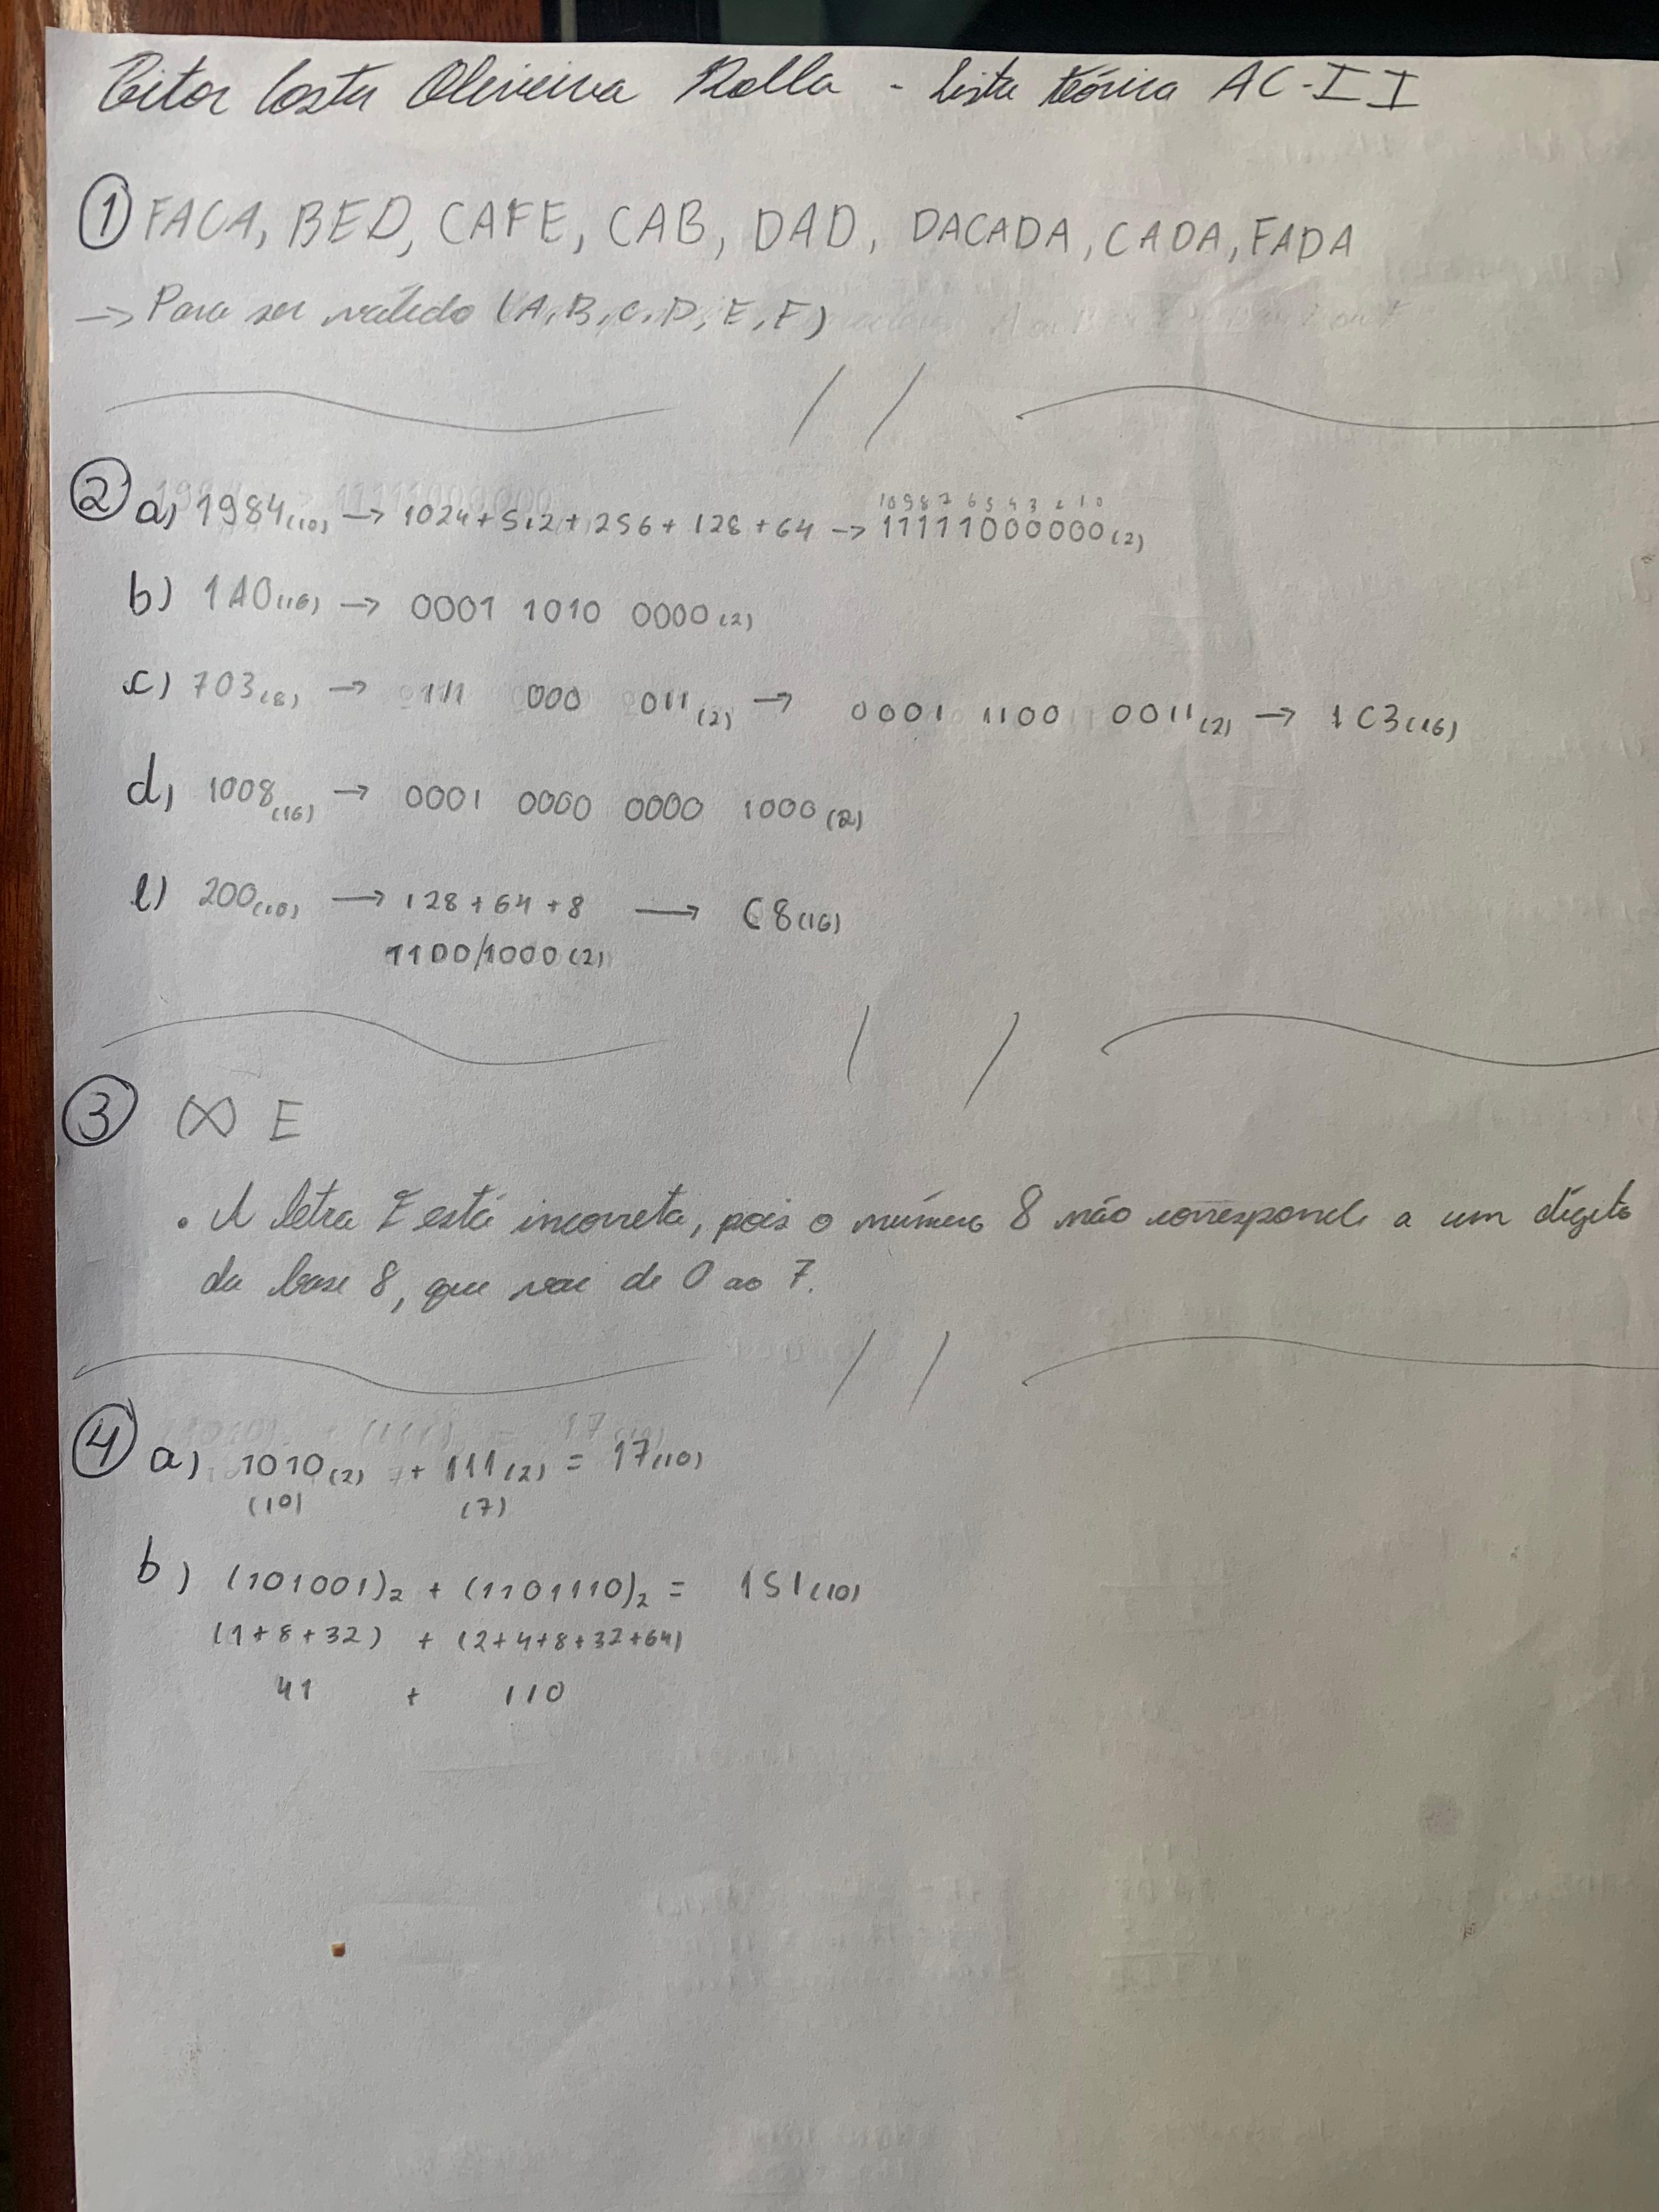 Bitor Costa Oliveira Rolla - Lista teórica AC-II
1 FACA, BED, CAFE, CAB, DAD, DACADA, CADA, FADA
→ Para ser válido (A,B,C,D,E,F)
2 a) 1984(10) → 1024+512+256+128+64 → 11111000000(2)
10 9 8 7 6 5 4 3 2 1 0
b) 1A0(16) → 0001 1010 0000(2)
c) 703(8) → 111 000 011(2) → 0001 1100 0011(2) → 1C3(16)
d) 1008(16) → 0001 0000 0000 1000(2)
e) 200(10) → 128+64+8 → C8(16)
1100/1000(2)
3 (X) E
• A letra E está incorreta, pois o número 8 não corresponde a um dígito
da base 8, que vai de 0 ao 7.
4 a) 1010(2) + 111(2) = 17(10)
(10) (7)
b) (101001)2 + (1101110)2 = 151(10)
(1+8+32) + (2+4+8+32+64)
41 + 110